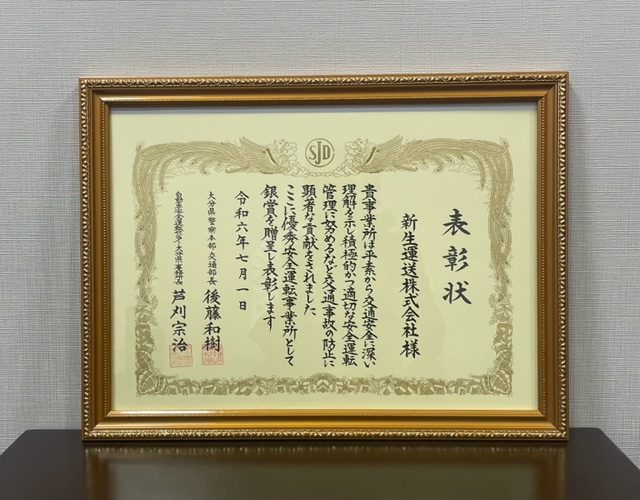 SJD
表彰状
新生運送株式会社様
貴事業所は平素から交通安全に深い
理解を示し積極的かつ適切な安全運転
管理に努めるなど交通事故の防止に
顕著な貢献をされました
ここに優秀安全運転事業所として
銀賞を贈呈し表彰します
令和六年七月一日
大分県警察本部交通部長 後藤和樹
自動車安全運転センター大分県事務所長 芦刈宗治